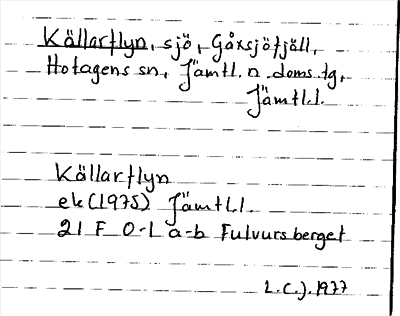 Källarflyn, sjö, Gåxsjöfjäll,
Hotagens sn, Jämtl. n. doms.tg,
Jämtl.l.
Källarflyn
ek (1975) Jämtl.l.
21 F 0-1 a-b Fulvursberget
L.C.J. 1977